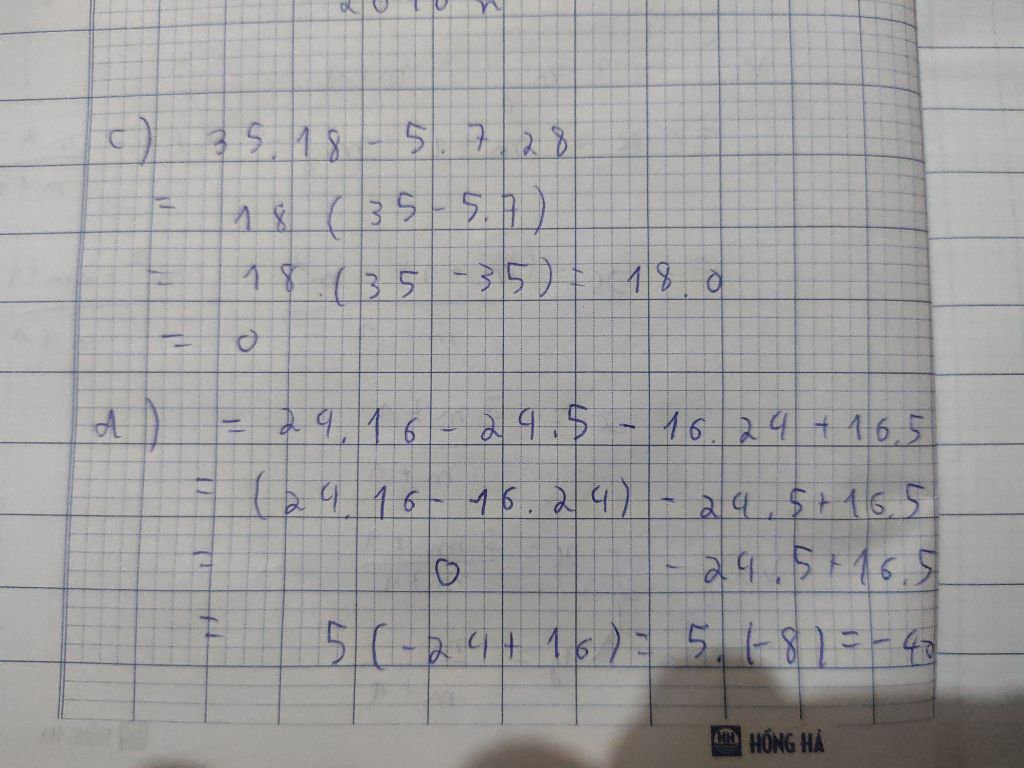 c) 35.18 - 5.7.28
= 18 (35 - 5.7)
= 18.(35 - 35) = 18.0
= 0
d) = 24.16 - 24.5 - 16.24 + 16.5
= (24.16 - 16.24) - 24.5 + 16.5
= 0 - 24.5 + 16.5
= 5 (-24 + 16) = 5.(-8) = -40
HỒNG HÀ